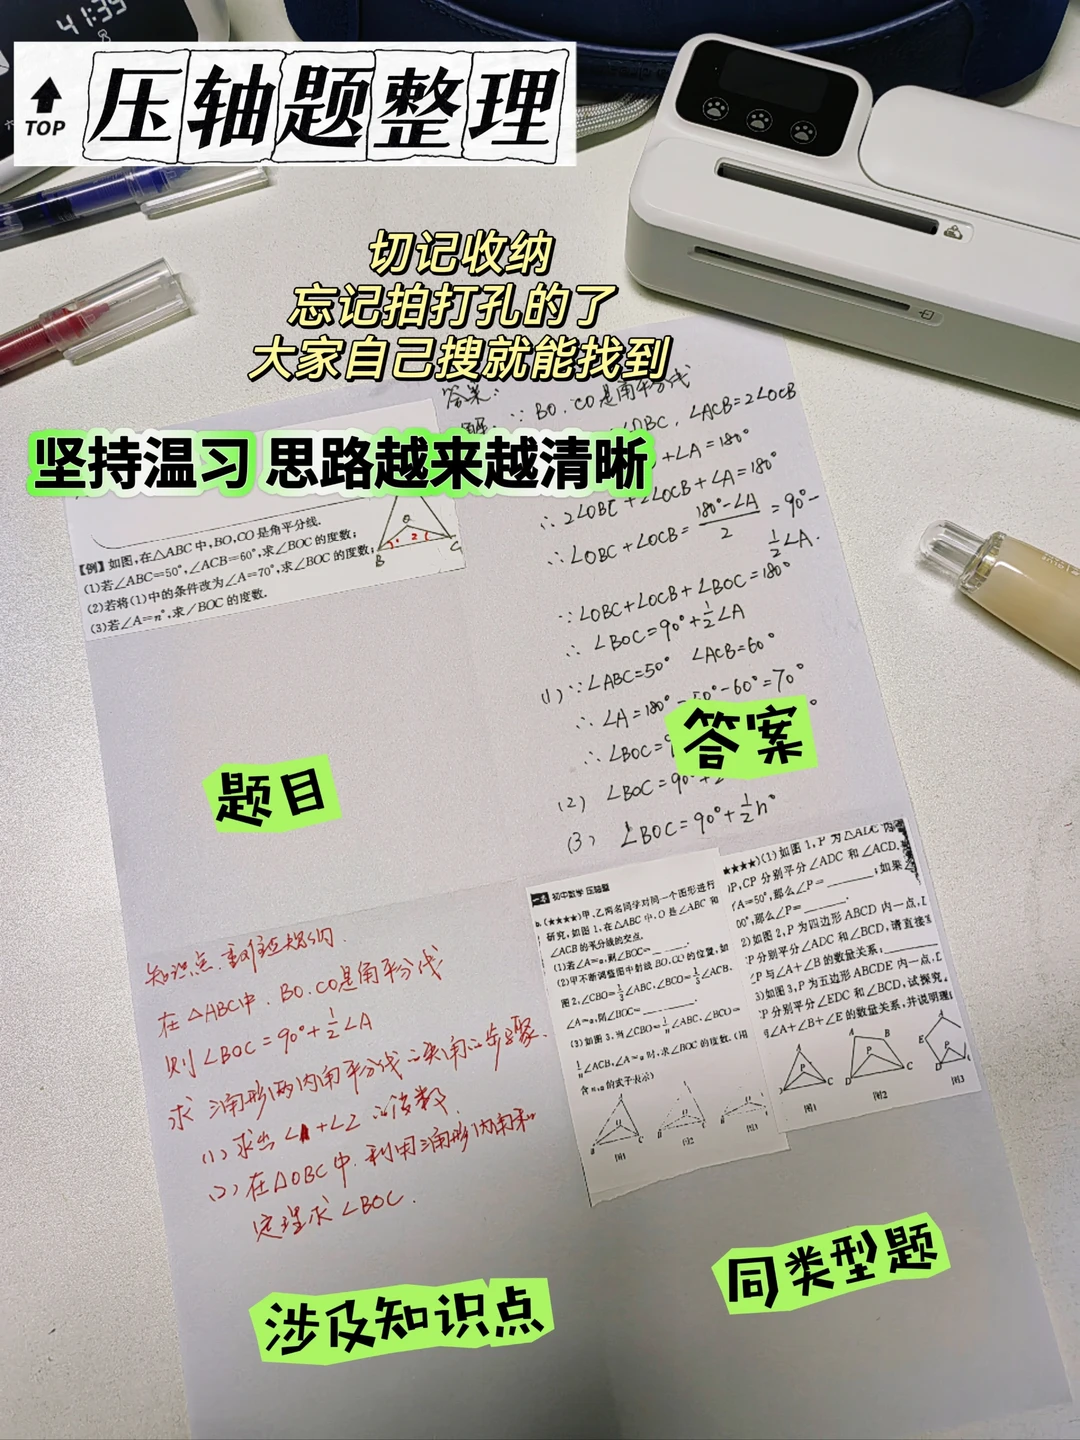 41:39
TOP
压轴题整理
切记收纳
忘记拍打孔的了
大家自己搜就能找到
坚持温习 思路越来越清晰
【例】如图,在△ABC中,BO,CO是角平分线.
(1)若∠ABC=50°,∠ACB=60°,求∠BOC的度数;
(2)若将(1)中的条件改为∠A=70°,求∠BOC的度数;
(3)若∠A=n°,求∠BOC的度数.
O
1
2
B
C
题目
答案:
∵ BO.CO是角平分线
∠OBC, ∠ACB=2∠OCB
+∠A=180°
∴ 2∠OBC+2∠OCB+∠A=180°
∴ ∠OBC+∠OCB= 180°-∠A / 2 =90°-
1/2∠A.
∵ ∠OBC+∠OCB+∠BOC=180°
∴ ∠BOC=90°+1/2∠A
(1) ∵∠ABC=50° ∠ACB=60°
∴ ∠A=180°-50°-60°=70°
∴ ∠BOC=
(2) ∠BOC=90°+
(3) ∠BOC=90°+1/2n°
答案
知识点.
在△ABC中. BO.CO是角平分线
则∠BOC=90°+1/2∠A
求三角形两内角平分线的夹角的步骤.
(1) 求出∠1+∠2的度数.
(2) 在△OBC中.利用三角形内角和
定理求∠BOC.
涉及知识点
初中数学 压轴题
(★★★★)甲、乙两名同学对同一个图形进行
研究,如图1,在△ABC中,O是∠ABC和
∠ACB的平分线的交点.
(1)若∠A=α,则∠BOC=______.
(2)甲不断调整图中射线BO,CO的位置,如
图2,∠CBO=1/3∠ABC,∠BCO=1/3∠ACB,
∠A=α,则∠BOC=______.
(3)如图3,当∠CBO=1/n∠ABC,∠BCO=
1/n∠ACB,∠A=α时,求∠BOC的度数.(用
含n,α的式子表示)
图1
图2
图3
★★★★)(1)如图1,P为△ADC内
P,CP分别平分∠ADC和∠ACD.
∠A=50°,那么∠P=______;如果
00°,那么∠P=______.
2)如图2,P为四边形ABCD内一点,
P分别平分∠ADC和∠BCD,请直接
∠P与∠A+∠B的数量关系:______
3)如图3,P为五边形ABCDE内一点,
CP分别平分∠EDC和∠BCD,试探究
∠A+∠B+∠E的数量关系,并说明理
A
P
C
图1
A
B
P
D
C
图2
A
E
P
D
图3
同类型题